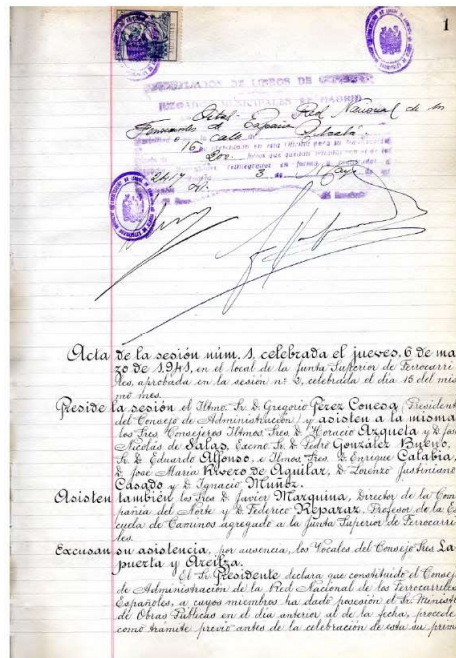 1
LEGALIZACION DE LIBROS DE
JUZGADOS MUNICIPALES DE MADRID
Red Nacional de los
Ferrocarriles de España
calle Alcalá
16
200
3 Mayo
Acta de la sesión núm. 1, celebrada el jueves, 6 de ma
zo de 1941, en el local de la Junta Superior de Ferrocarri
les, aprobada en la sesión nº 2, celebrada el día 13 del mis
mo mes.
Preside la sesión el Iltmo. Sr. D. Gregorio Pérez Conesa (Presidente
del Consejo de Administración) y asisten a la misma
los Sres Consejeros Iltmos. Sres. D. Horacio Azqueta y D. José
Nicolás de Salas, Excmo Sr. D. Pedro González Bueno,
Sr. D. Eduardo Alfonso, e Iltmos. Sres. D. Enrique Calabia,
D. José María Rivero de Aguilar, D. Lorenzo Justiniano
Casado y D. Ignacio Muñoz.
Asisten también los Sres D. Javier Marquina, Director de la Com
pañía del Norte y D. Federico Reparaz, Profesor de la Es
cuela de Caminos agregado a la Junta Superior de Ferrocarri
les.
Excusan su asistencia, por ausencia, los Vocales del Consejo Sres La
puerta y Areilza.
El Sr. Presidente declara que constituido el Consejo
de Administración de la Red Nacional de los Ferrocarriles
Españoles, a cuyos miembros ha dado posesión el Sr. Ministro
de Obras Públicas en el día anterior al de la fecha, procede
como trámite previo antes de la celebración de esta su prime